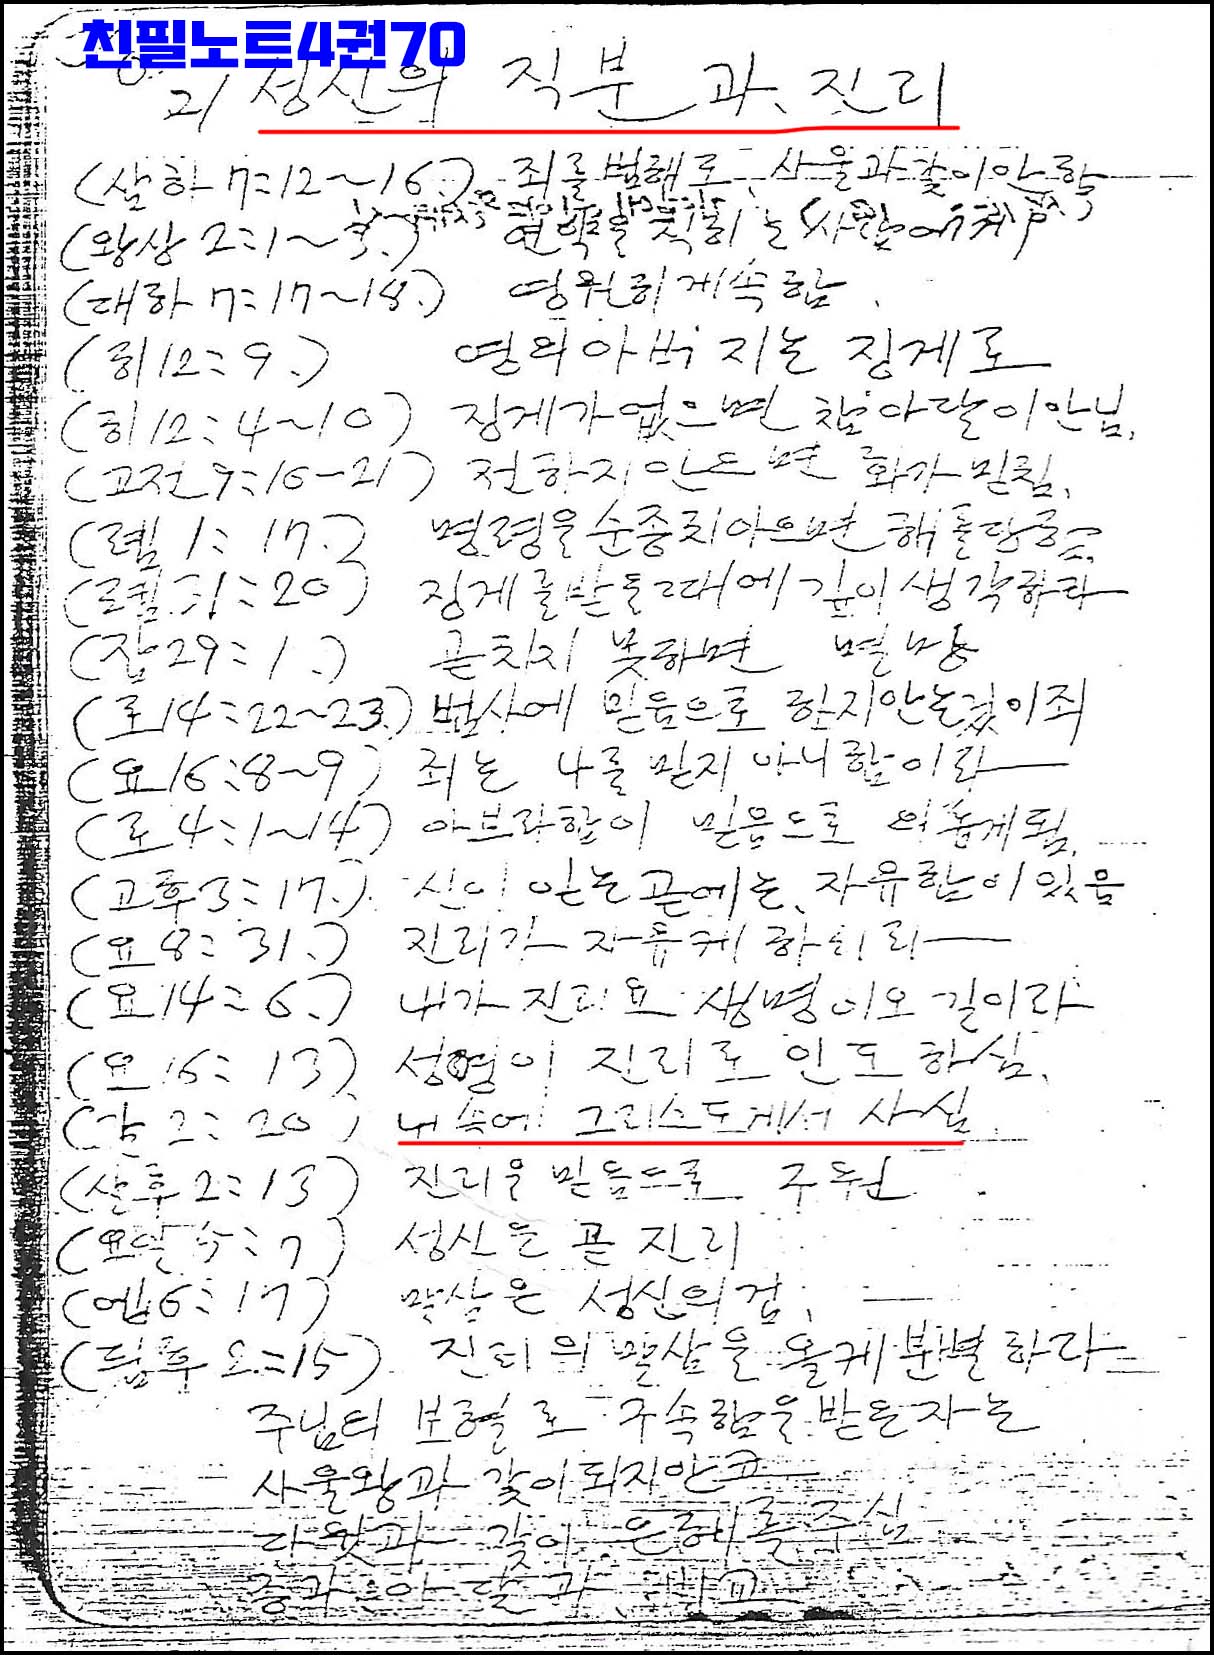 친필노트4권70
21 성신의 직분과, 진리
(삼하 7:12~16.) 죄를 범해로, 사울과 같이 안함
(왕상 2:1~3.) 언약을 직히는 사람에게
(대하 7:17~18.) 영원히 게속함.
(히 12:9.) 영의 아버지는 징게로
(히 12:4~10) 징게가 없으면 참 아달이 안님.
(고전 9:16-21) 전하지 안으면 화가 믿침.
(렘 1:17.) 명령을 순종치 아으면 해를 당
(렘 :1:20) 징게를 받를 때에 깊이 생각하라
(잠 29:1.) 곧치지 못하면 멸망
(로 14:22~23.) 범사에 믿음으로 한지 안는 것이 죄
(요 16:8~9) 죄는 나를 믿지 아니함이라
(로 4:1~14) 아브라함이 믿음으로 의롭게 됨.
(고후 3:17.) 신이 잇는 곧에는, 자유함이 있음
(요 8:31.) 진리가 자유케 하리라
(요 14:6.) 내가 진리요 생명이오 길이라
(요 16:13) 성령이 진리로 인도하심.
(갈 2:20) 내 속에 그리스도게서 사심.
(살후 2:13) 진리을 믿음으로 구원
(요일 5:7) 성신은 곧 진리
(엡 6:17) 말삼은 성신의 검.
(딤후 2:15) 진리의 말삼을 올케 분별하라
주님의 보혈로 구속함을 받은 자는
사울왕과 같이 되지 안코
다윗과 같이 은혜를 주심
종과 아달과